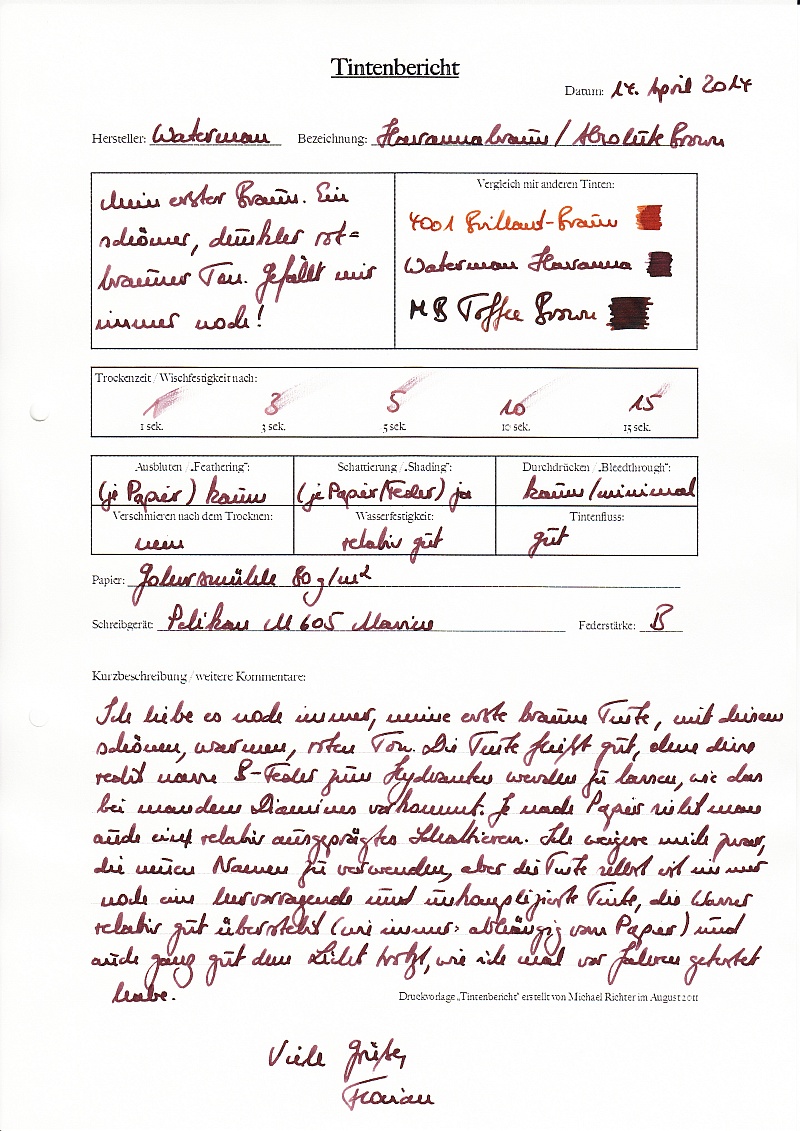 Tintenbericht
Datum: 14. April 2014
Hersteller: Waterman Bezeichnung: Havannabraun / Absolute Brown
Mein erster Braun. Ein
schöner, dunkler rot=
brauner Ton. Gefällt mir
immer noch!
Vergleich mit anderen Tinten:
4001 Brillant-Braun
Waterman Havanna
MB Toffee Brown
Trockenzeit / Wischfestigkeit nach:
1 3 5 10 15
1 sek. 3 sek. 5 sek. 10 sek. 15 sek.
Ausbluten / „Feathering": Schattierung / „Shading": Durchdrücken / „Bleedthrough":
(je Papier) kaum (je Papier/Feder) ja kaum/minimal
Verschmieren nach dem Trocknen: Wasserfestigkeit: Tintenfluss:
nein relativ gut gut
Papier: Gohrsmühle 80 g/m²
Schreibgerät: Pelikan M 605 Marine Federstärke: B
Kurzbeschreibung / weitere Kommentare:
Ich liebe es noch immer, meine erste braune Tinte, mit diesem
schönen, warmen, roten Ton. Die Tinte fließt gut, ohne deine
recht nasse B-Feder zum Hydranten werden zu lassen, wie das
bei manchem Diamines vorkommt. Je nach Papier sieht man
auch ein relativ ausgeprägtes Schattieren. Ich weigere mich zwar,
die neuen Namen zu verwenden, aber die Tinte selbst ist immer
noch eine hervorragende und unkomplizierte Tinte, die Wasser
relativ gut übersteht (wie immer: abhängig vom Papier) und
auch ganz gut dem Licht trotzt, wie ich mal vor Jahren getestet
habe.
Druckvorlage „Tintenbericht" erstellt von Michael Richter im August 2011
Viele Grüße,
Florian